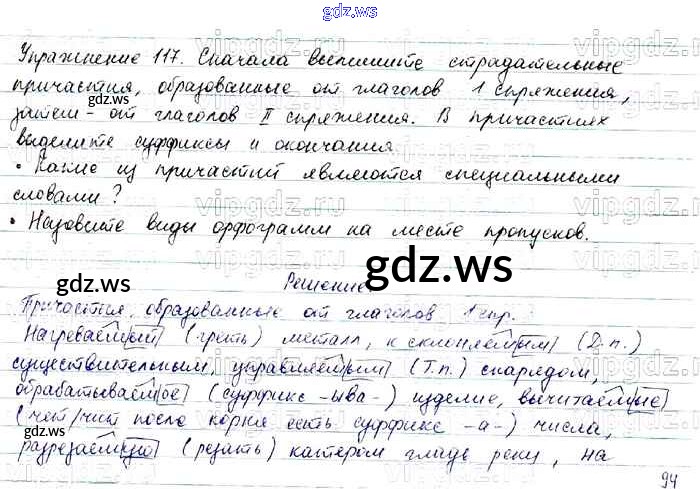 gdz.ws
Упражнение 117. Сначала выпишите страдательные
причастия, образованные от глаголов 1 спряжения,
затем - от глаголов II спряжения. В причастиях
выделите суффиксы и окончания.
• Какие из причастий являются специальными
словами?
• Назовите виды орфограмм на месте пропусков.
Решение.
Причастия, образованные от глаголов 1 спр.
Нагреваемый (греть) металл, к склоняемым (Д.п.)
существительным, управляемым (Т.п.) снарядом,
обрабатываемое (суффикс -ыва-) изделие, вычитаемые
(чет/чит после корня есть суффикс -а-) числа,
разрезаемую (резать) катером гладь реки, на
94
gdz.ws
gdz.ws
gdz.ws
gdz.ws
gdz.ws
gdz.ws
vipgdz.ws
vipgdz.ws
vipgdz.ws